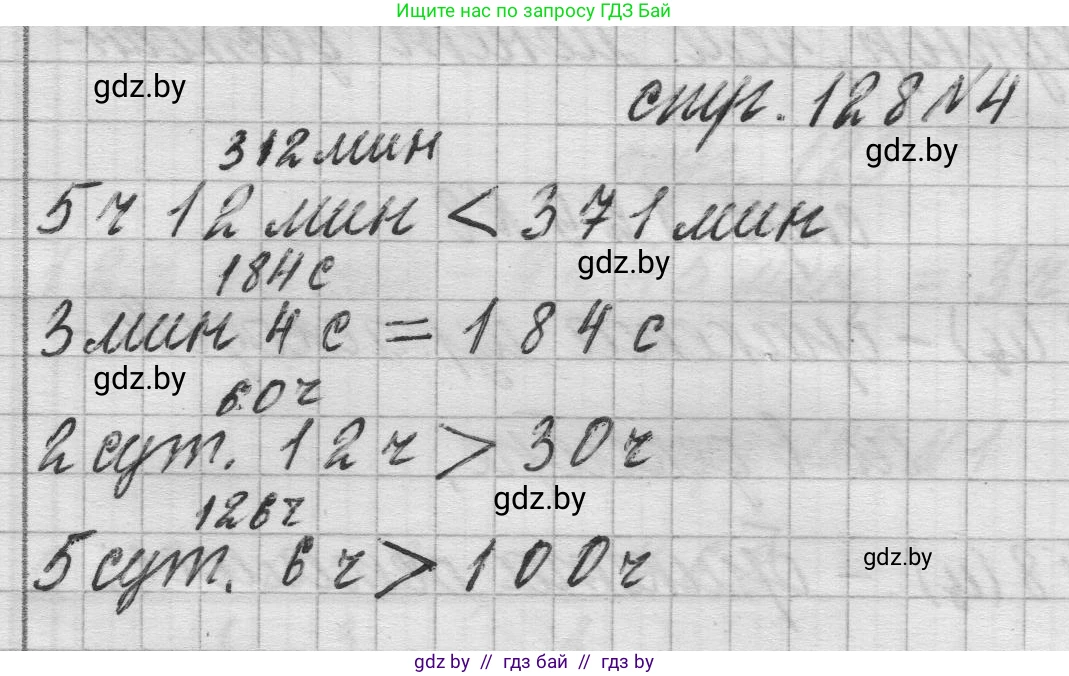 Ищите нас по запросу ГДЗ Бай
gdz.by
стр. 128 №4
gdz.by
312 мин
5 ч 12 мин < 371 мин
gdz.by
184 с
3 мин 4 с = 184 с
gdz.by
60 ч
2 сут. 12 ч > 30 ч
gdz.by
126 ч
5 сут. 6 ч > 100 ч
gdz.by
gdz by // гдз бай // гдз by